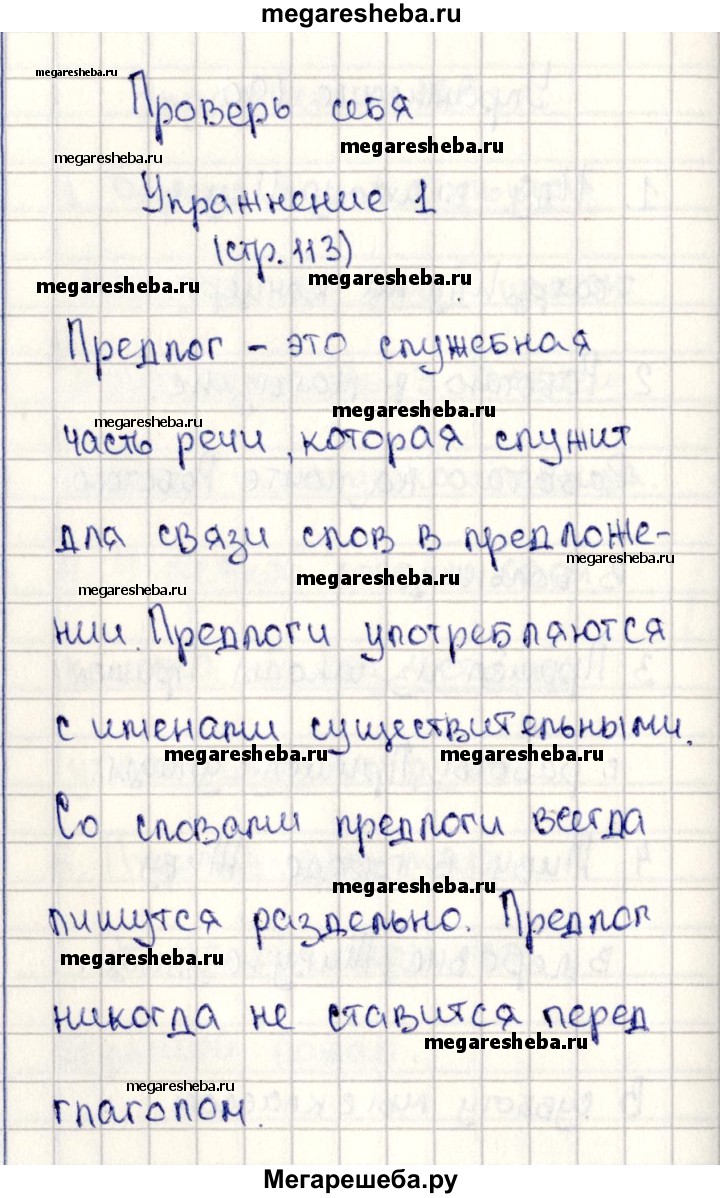 megaresheba.ru
megaresheba.ru
Проверь себя
megaresheba.ru
megaresheba.ru
Упражнение 1
(стр. 113)
megaresheba.ru
megaresheba.ru
Предлог - это служебная
megaresheba.ru
megaresheba.ru
часть речи, которая служит
для связи слов в предложе-
megaresheba.ru
megaresheba.ru
megaresheba.ru
нии. Предлоги употребляются
с именами существительными.
megaresheba.ru
megaresheba.ru
Со словами предлоги всегда
megaresheba.ru
пишутся раздельно. Предлог
megaresheba.ru
никогда не ставится перед
megaresheba.ru
megaresheba.ru
глаголом.
Мегарешеба.ру